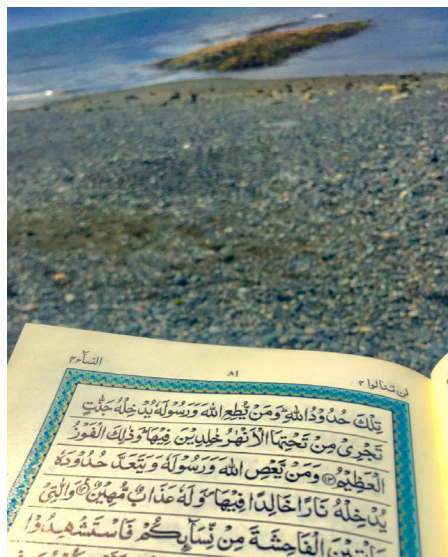 لن تنالوا ۴ ۸۱ النسآء ۴
تِلْكَ حُدُوْدُ اللّٰهِ ؕ وَمَنْ يُّطِعِ اللّٰهَ وَرَسُوْلَهٗ يُدْخِلْهُ جَنّٰتٍ
تَجْرِيْ مِنْ تَحْتِهَا الْاَنْهٰرُ خٰلِدِيْنَ فِيْهَا ؕ وَذٰلِكَ الْفَوْزُ
الْعَظِيْمُ ﴿۱۳﴾ وَمَنْ يَّعْصِ اللّٰهَ وَرَسُوْلَهٗ وَيَتَعَدَّ حُدُوْدَهٗ
يُدْخِلْهُ نَارًا خَالِدًا فِيْهَا ۪ وَلَهٗ عَذَابٌ مُّهِيْنٌ ﴿۱۴﴾ وَالّٰتِيْ
يَاْتِيْنَ الْفَاحِشَةَ مِنْ نِّسَآىِٕكُمْ فَاسْتَشْهِدُوْا